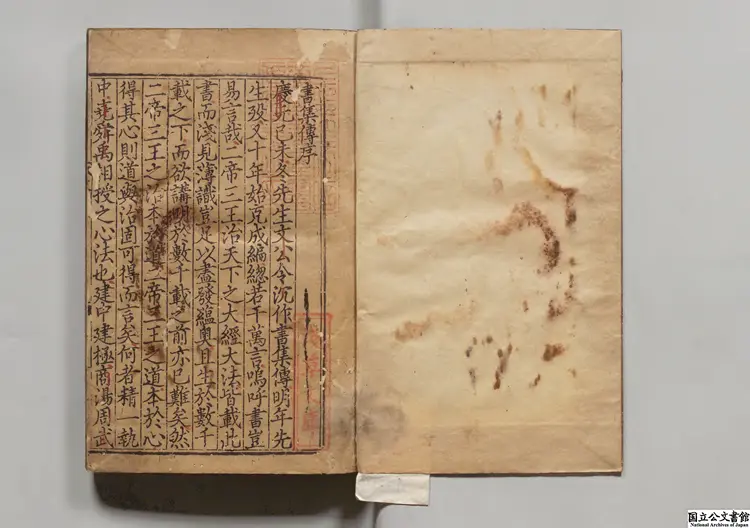 書集傳序
慶元己未冬先生文公令沉作書集傳明年先
生歿又十年始克成編總若干萬言嗚呼書豈
易言哉二帝三王治天下之大經大法皆載此
書而淺見薄識豈足以盡發蘊奥且生於數千
載之下而欲講明於數千載之前亦已難矣然
二帝三王之治本於道二帝三王之道本於心
得其心則道與治固可得而言矣何者精一執
中堯舜禹相授之心法也建中建極商湯周武
国立公文書館
National Archives of Japan